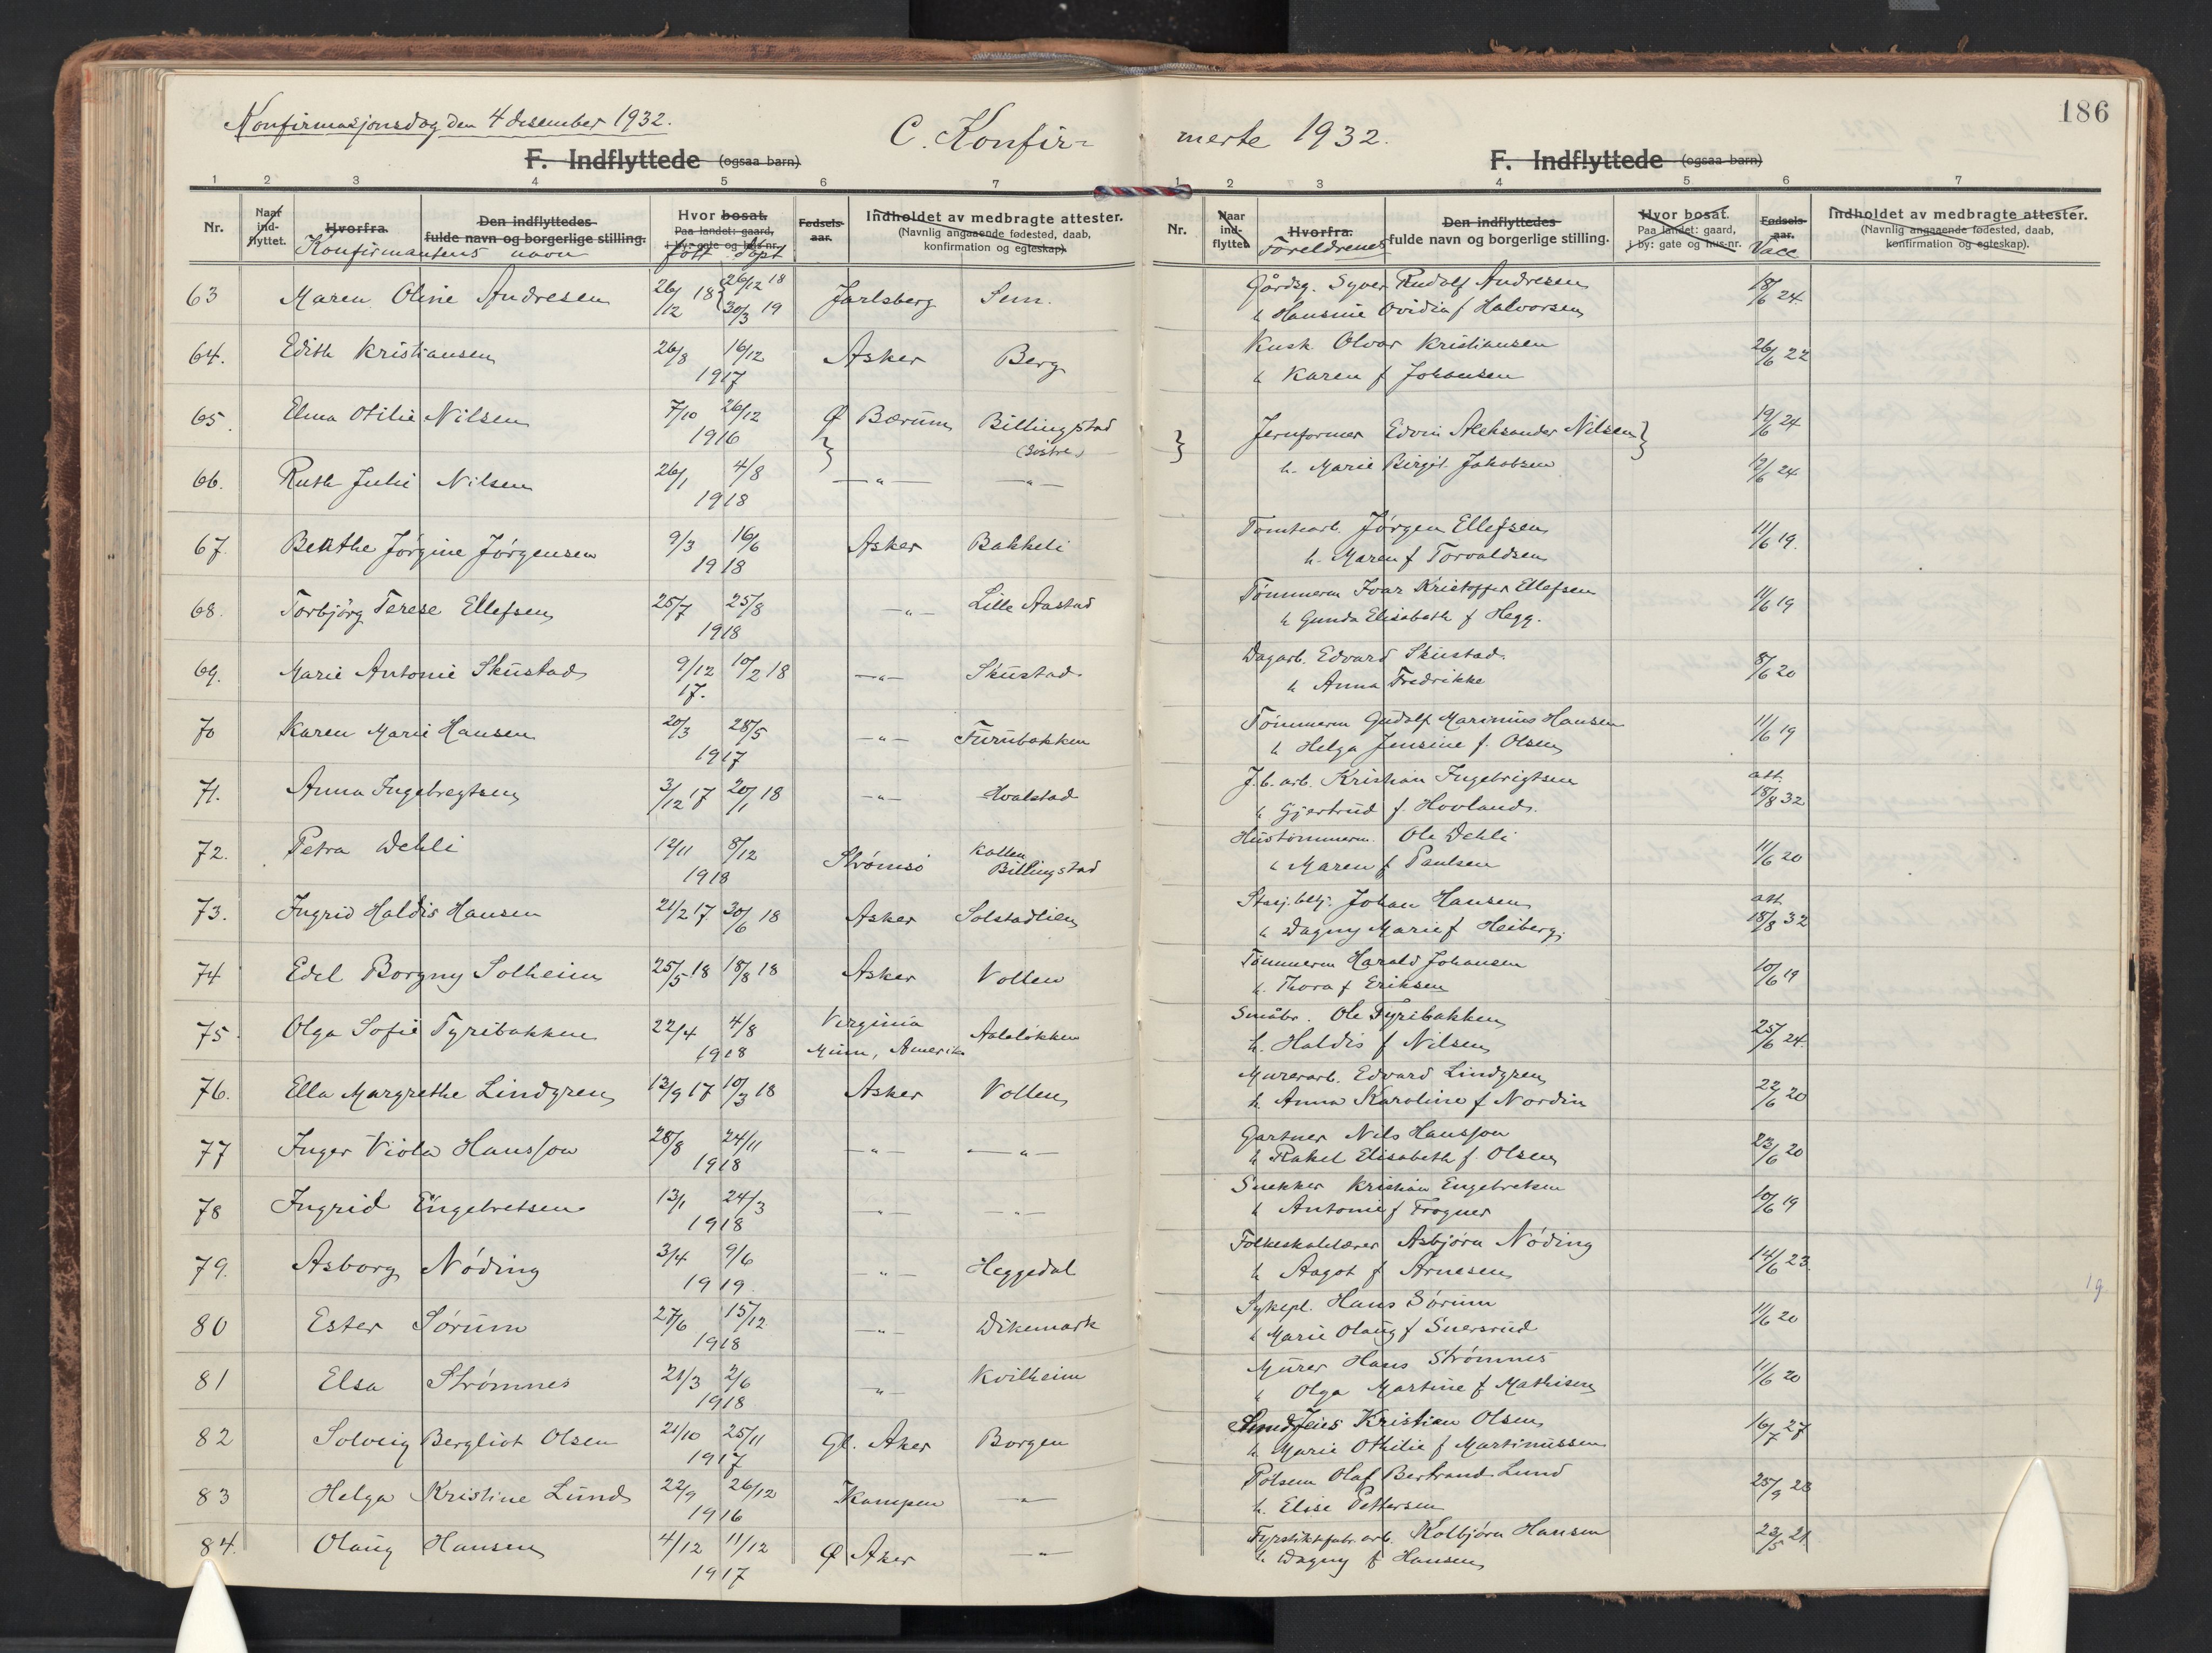 Konfirmasjonsdag den 4 desember 1932.
C. Konfir=
F. Indflyttede (ogsaa barn)
1 2 3 4 5 6 7
Nr. Naar ind- flyttet. Hvorfra. Den indflyttedes fulde navn og borgerlige stilling. Hvor bosat. Paa landet: gaard, i by: gate og hus-nr. Fødsels- aar. Indholdet av medbragte attester. (Navnlig angaaende fødested, daab, konfirmation og egteskap).
Konfirmantens navn født døpt
63 Maren Oline Andresen 26/12 18 { 26/12 18 30/3 19 Jarlsberg Sem.
64. Edith Kristiansen 26/8 16/12 1917 Asker Berg
65. Elma Otilie Nilsen 7/10 26/12 1916 Ø Bærum Billingstad
66. Ruth Julie Nilsen 26/1 4/8 1918 —"— —"—
67. Benthe Jørgine Jørgensen 9/3 16/6 1918 Asker Bakkeli
68. Torbjørg Terese Ellefsen 25/7 25/8 1918 —"— Lille Aastad
69. Marie Antonie Skustad 9/12 17. 10/2 18 —"— Skustad.
70 Karen Marie Hansen 20/3 28/5 1917 —"— Furubakken
71. Anna Ingebregtsen 3/12 17 20/1 18 —"— Hvalstad
72. Petra Dehli 12/11 8/12 1918 Strømsø Kollen Billingstad
73. Ingrid Haldis Hansen 21/2 17 30/6 18 Asker Solstadlien
74 Edel Borgny Solheim 25/5 18 18/8 18 Asker Vollen
75. Olga Sofie Tyribakken 22/4 4/8 1918 Virginia Minn, Amerika
76. Ella Margrethe Lindgren 13/9 17 10/3 18 Asker Vollen
77 Inger Viola Hansson 28/8 24/11 1918 —"— —"—
78 Ingrid Engebretsen 13/1 24/3 1918 —"— —"—
79. Asborg Nøding 3/4 9/6 1919 —"— Heggedal
80 Ester Sørum 27/6 15/12 1918 —"— Dikemark
81 Elsa Strømnes 21/3 2/6 1918 —"— Kvilheim
82 Solveig Bergliot Olsen 21/10 25/11 1917 Gl. Aker Borgen
83 Helga Kristine Lund 22/9 26/12 1916 Kampen —"—
84. Olaug Hansen 4/12 11/12 1917 Ø Aker —"—
186
merte 1932.
F. Indflyttede (ogsaa barn)
1 2 3 4 5 6 7
Nr. Naar ind- flyttet. Hvorfra. Den indflyttedes fulde navn og borgerlige stilling. Hvor bosat. Paa landet: gaard, i by: gate og hus-nr. Fødsels- aar. Indholdet av medbragte attester. (Navnlig angaaende fødested, daab, konfirmation og egteskap).
Foreldrenes Vacc
Gårdsg. Syver Rudolf Andresen 18/6 24.
h Hansine Ovidia f Halvorsen
Kusk Olvar Kristiansen 26/6 22
h Karen f Johansen
} Jernformer Edvin Aleksander Nilsen } 19/6 24
h. Marie Birgit Jakobsen 12/6 24
Tomtearb. Jørgen Ellefsen 11/6 19.
h. Maren f Torvaldsen
Tømmerm Ivar Kristoffer Ellefsen 11/6 19
h Gunda Elisabeth f Hegg.
Dagarb. Edvard Skustad. 8/6 20
h Anna Fredrikke
Tømmerm Gudolf Marinius Hansen 11/6 19
h Helga Jensine f. Olsen
J.b. arb. Kristian Ingebrigtsen att. 18/8 32
h Gjertrud f. Hovland.
Hustømmerm. Ole Dehli 11/6 20
h Maren f Paulsen
Stasj.betj. Johan Hansen att 18/8 32
h Dagny Marie f Heiberg.
Tømmerm Harald Johansen 10/6 19
h. Thora f Eriksen
Småbr. Ole Tyribakken 25/6 24.
h. Haldis f Nilsen
Murerarb. Edvard Lindgren 22/6 20
h. Anna Karoline f Nordin
Gartner Nils Hansson 23/6 20
h Rakel Elisabeth f. Olsen
Snekker Kristian Engebretsen 10/6 19
h Antonie f Frogner
Folkeskolelærer Asbjørn Nøding 14/6 23
h Aagot f Arnesen
Sykepl. Hans Sørum 11/6 20
h Marie Olaug f Snersrud
Murer Hans Strømnes 11/6 20
h Olga Martine f Mathisen
Kristian Olsen 16/7 27
h Marie Othilie f Martinussen
Pølsem Olaf Bertrand Lund 25/9 23
h. Elise Pettersen
Fyrstikkfabr.arb. Kolbjørn Hansen 23/5 21
h. Dagny f Hansen